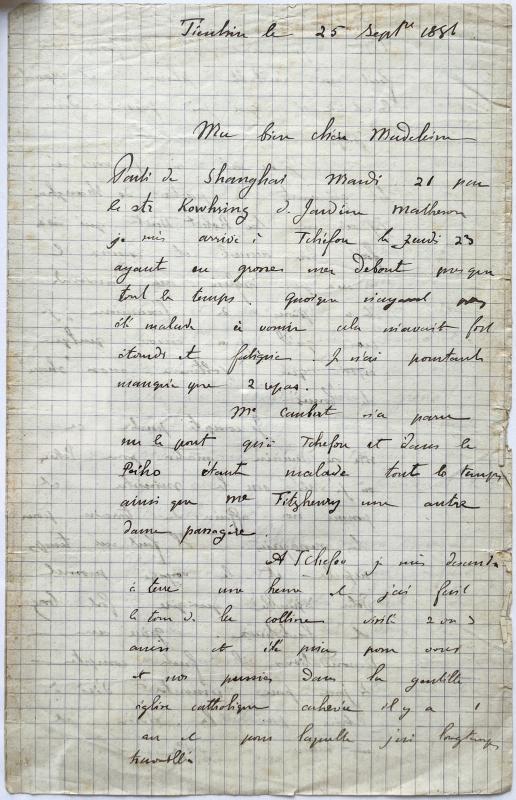 Tientsin le 25 Septre 1886
Ma bien chère Madeleine
Parti de Shanghai Mardi 21 par
le str Kowshing de Jardine Matheson
je suis arrivé à Tchéfou le Jeudi 23
ayant eu grosse mer debout presque
tout le temps. quoique n'ayant pas
été malade à vomir cela m'avait fort
étourdi et fatigué. Je n'ai pourtant
manqué que 2 repas.
Me Caubert n'a paru
sur le pont qu'à Tchéfou et dans le
Peiho étant malade tout le temps
ainsi que Me Fitzhenry une autre
dame passagère.
A Tchéfou je suis descendu
à terre une heure et j'ai fait
le tour de la colline visité 2 ou 3
amis et été prier pour vous
et nos parents dans la gentille
église catholique achevée il y a 1
an et pour laquelle j'ai longtemps
travaillé.